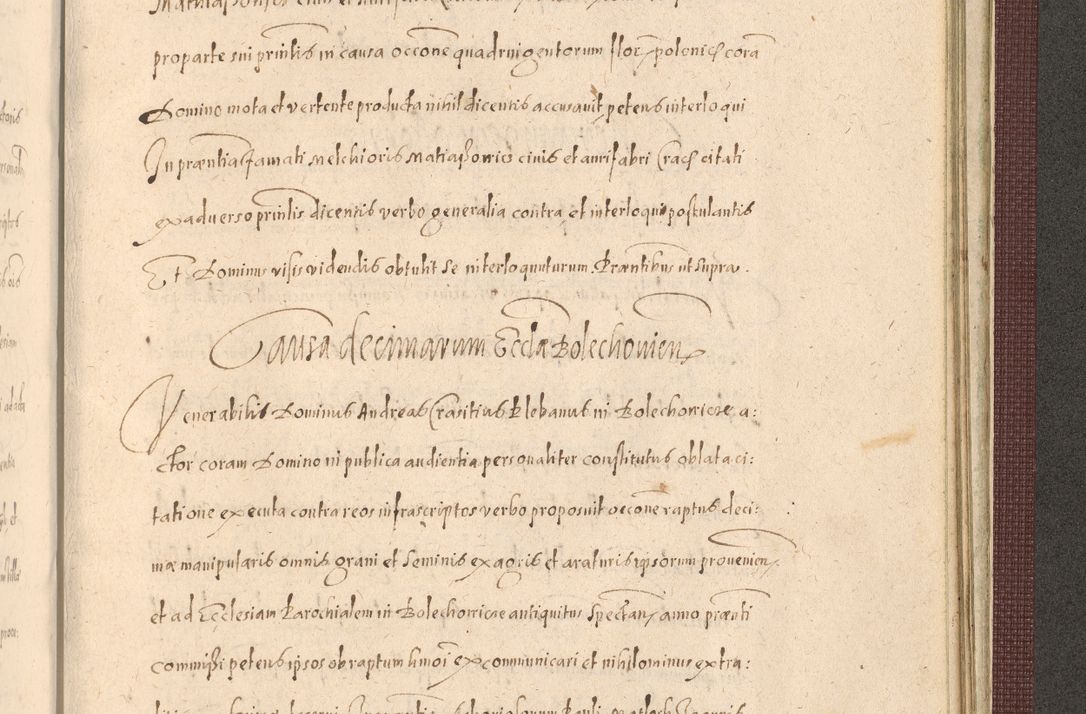 proparte sui prinlis in causa occone quadringentorum flor polonic corã
Domino mota et vertente producta nihil dicentis accusavit petens interloqui
In præntia famati Melchioris Matiaßowicz civis et aurifabri Crac citati
ex adverso prinlis dicentis verbo generalia contra et interloqui postulantis
Et Dominus visis videndis obtulit se interloquuturum. Præntibus ut supra.
Causa decimarum Eccla Bolechovien
Venerabilis Dominus Andreas Crasitius Plebanus in Bolechowicze a:
ctor coram Domino in publica audientia personaliter constitutus oblata ci:
tatione executa contra reos infrascriptos verbo proposuit occone raptus deci:
mæ manipularis omnis grani et seminis ex agris et araturis ipsorum provenien
et ad Ecclesiam Parochialem in Bolechowicze antiquitus spectan anno prænti
commißi petens ipsos ob raptum hmoi excommunicari et nihilominus extra: